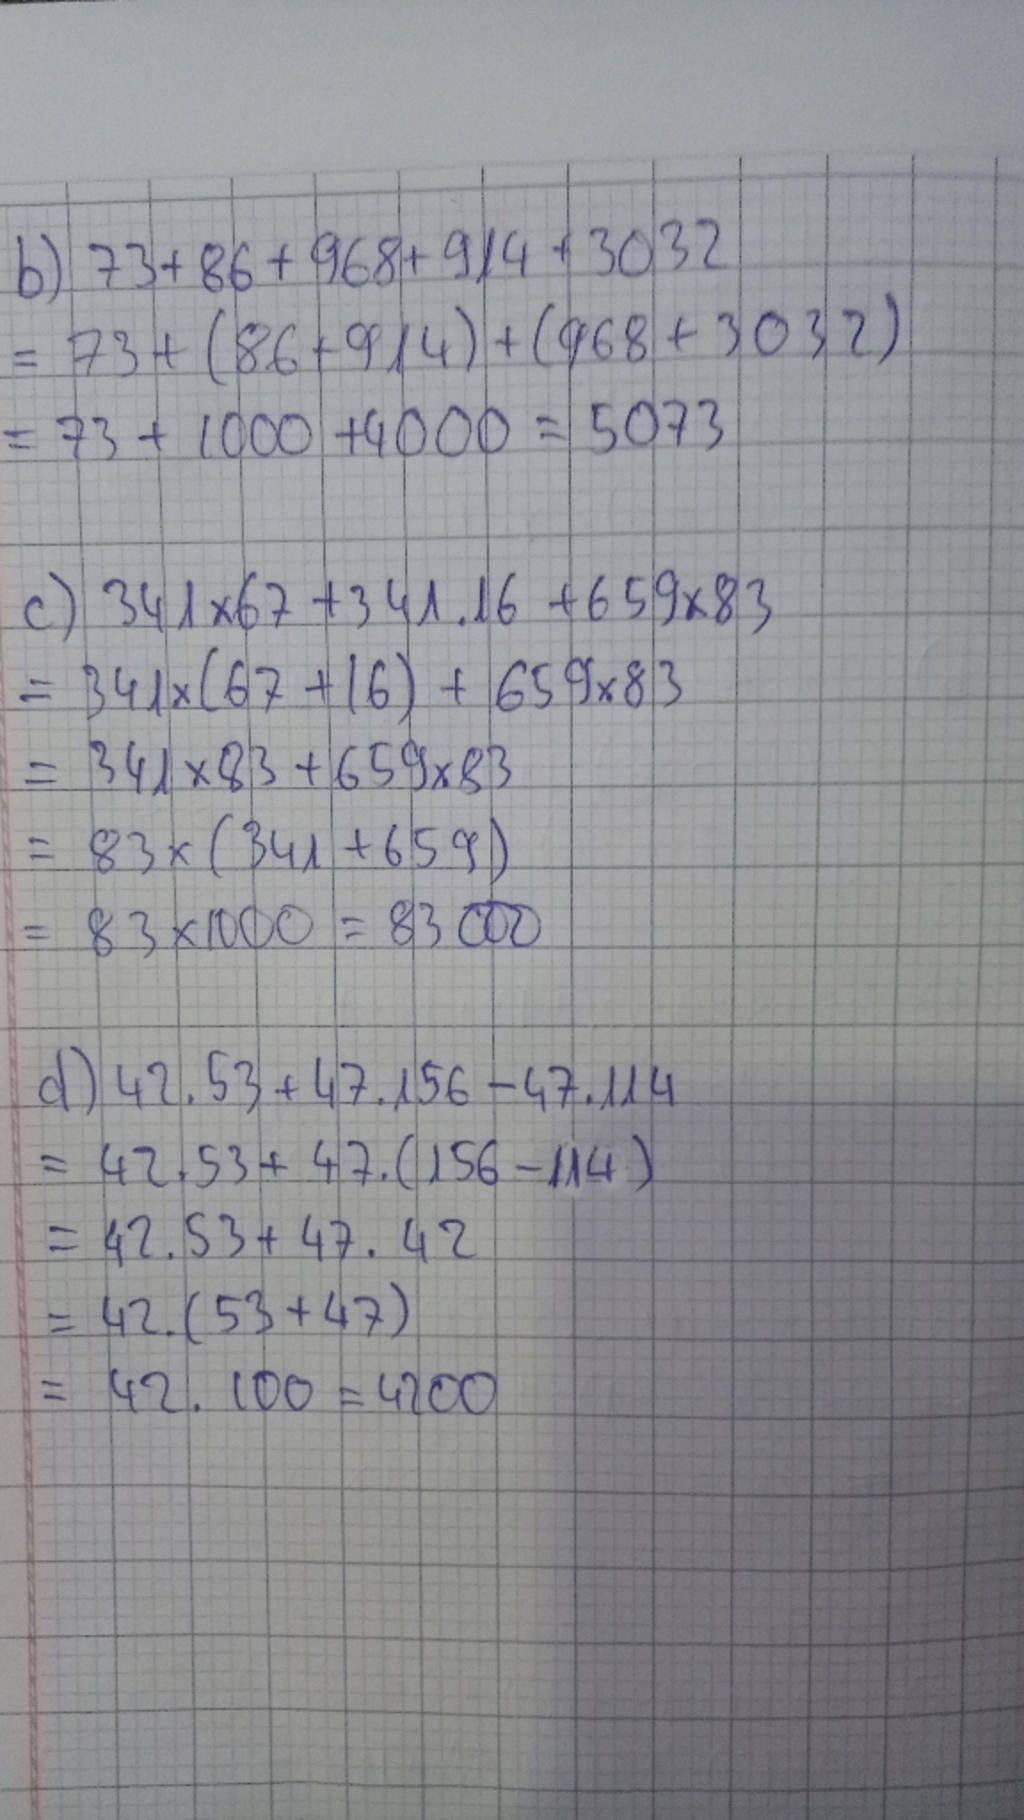 b) 73+86+968+914+3032
= 73+(86+914)+(968+3032)
= 73+1000+4000=5073
c) 341x67+341.16+659x83
= 341x(67+16)+659x83
= 341x83+659x83
= 83x(341+659)
= 83x1000=83000
d) 42.53+47.156-47.114
= 42.53+47.(156-114)
= 42.53+47.42
= 42.(53+47)
= 42.100=4200